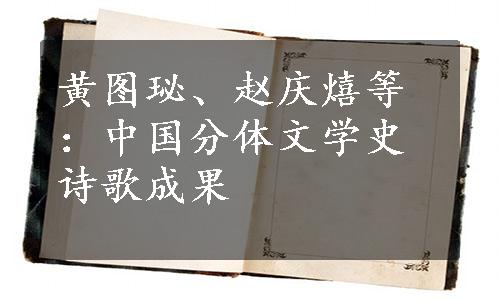 黄图珌、赵庆熺等
：中国分体文学史
诗歌成果